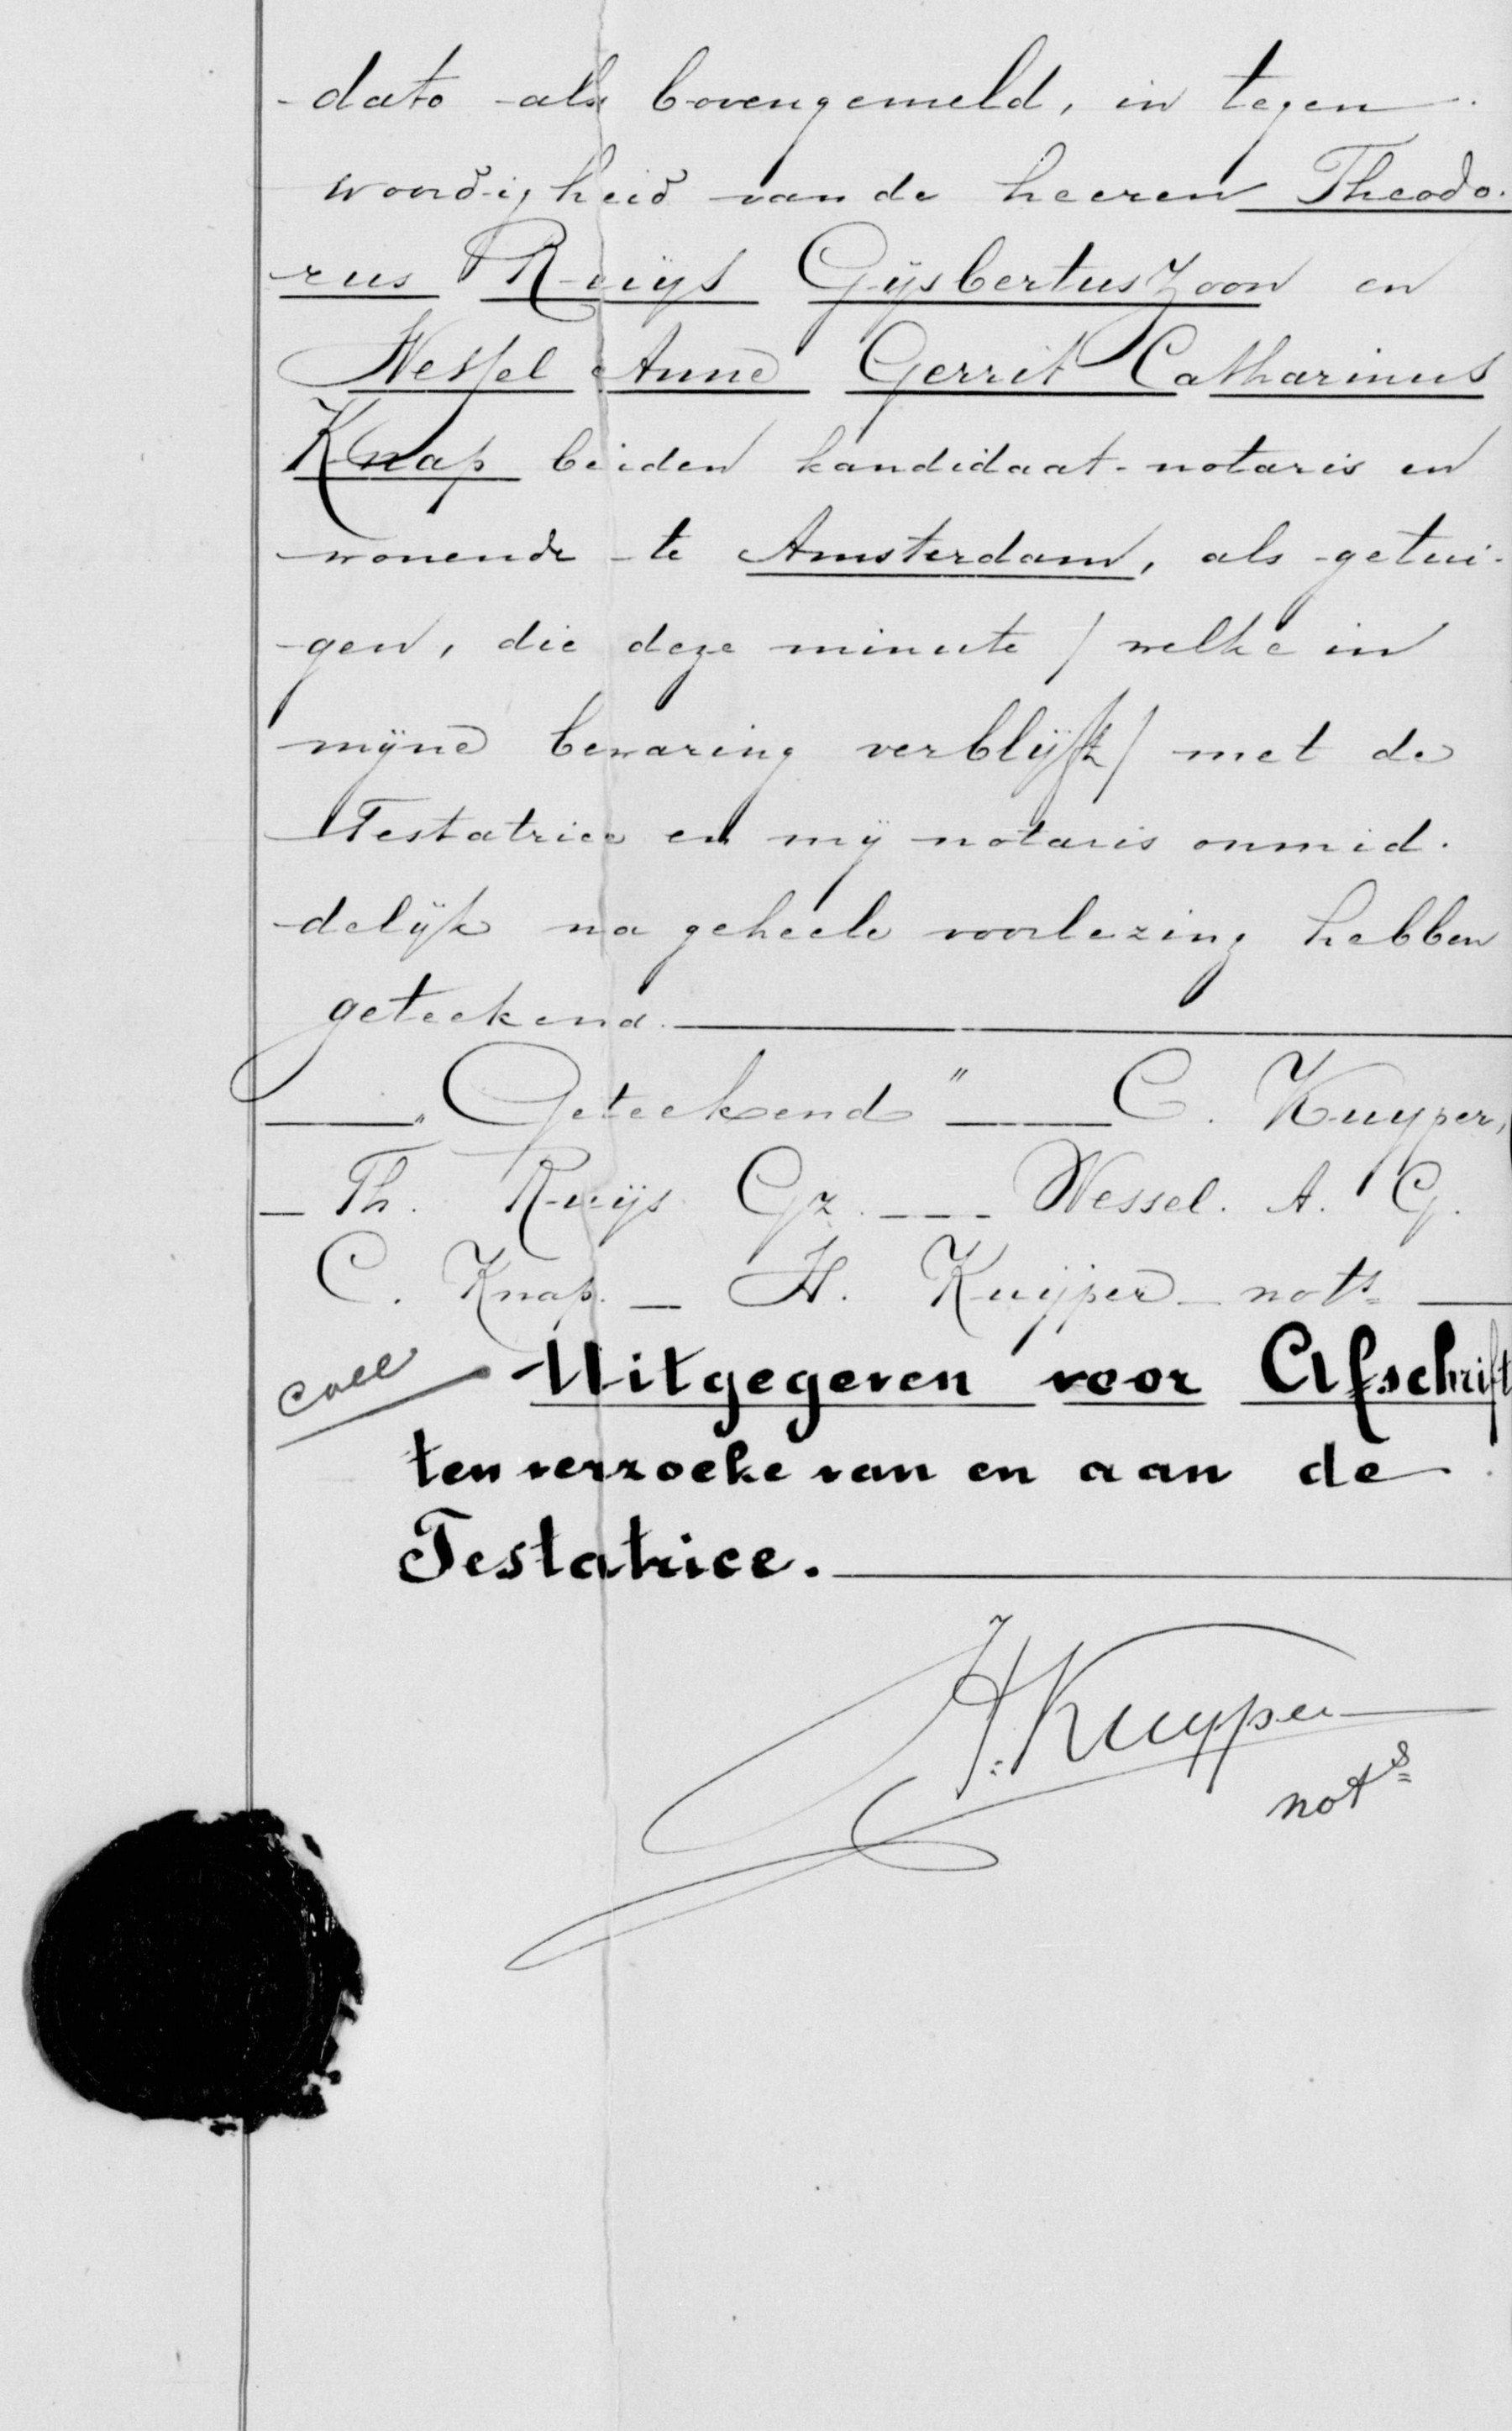 dato als bovengemeld, in tegen-
woordigheid van de heeren Theodo-
rus Ruijs Gijsbertuszoon en
Wessel Anne Gerrit Catharinus
Knap beiden kandidaat-notaris en
wonende te Amsterdam, als getui-
gen, die deze minute / welke in
mijne bewaring verblijft / met de
Testatrice en mij notaris onmid-
delijk na geheele voorlezing hebben
geteekend.
"Geteekend" C. Kuyper,
Th. Ruijs Gz. Wessel. A. G.
C. Knap. H. Kuijper nots
coll Uitgegeven voor Afschrift
ten verzoeke van en aan de
Testatrice.
H. Kuyper
nots